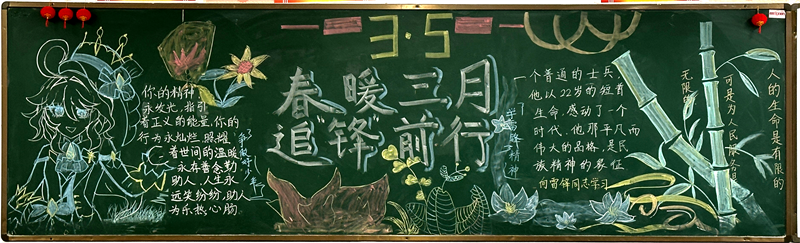 3·5
春暖三月
追"锋"前行
你的精神
永发光,指引
着正义的能量,你的
行为永灿烂,照耀
着世间的温暖
永存善念勤
助人,人生永
远笑纷纷,助人
为乐热心肠
争做好少年
一个普通的士兵
他以22岁的短暂
生命,感动了一个
时代,他那平凡而
伟大的品格,是民
族精神的象征
向雷锋同志学习
学雷锋精神
人的生命是有限的
可是为人民服务是
无限的